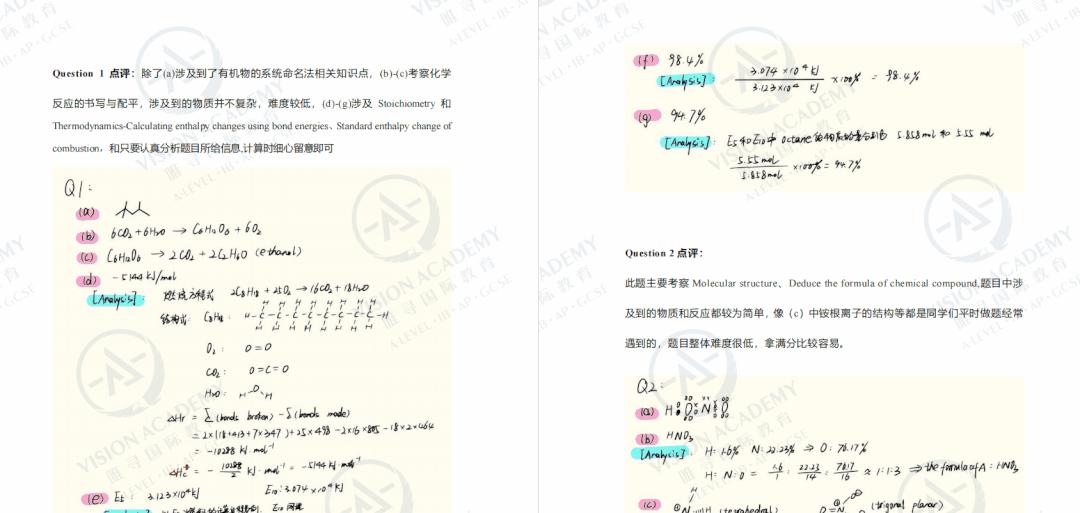 Question 1 点评：除了(a)涉及到了有机物的系统命名法相关知识点，(b)-(c)考察化学
反应的书写与配平，涉及到的物质并不复杂，难度较低，(d)-(g)涉及 Stoichiometry 和
Thermodynamics-Calculating enthalpy changes using bond energies、Standard enthalpy change of
combustion，和只要认真分析题目所给信息,计算时细心留意即可
Q1:
(a)
(b) 6CO2+6H2O → C6H12O6 + 6O2
(c) C6H12O6 → 2CO2 + 2C2H6O (ethanol)
(d) -5144 kJ/mol
[Analysis]: 燃烧方程式 2C8H18 + 25O2 → 16CO2 + 18H2O
结构式: C8H18: H-C-C-C-C-C-C-C-C-H
O2: O=O
CO2: O=C=O
H2O: H-O-H
ΔHr = Σ(bonds broken) - Σ(bonds made)
= 2×(18×413+7×347)+25×498-2×16×805-18×2×464
= -10288 kJ·mol⁻¹
ΔHc = -10288/2 kJ·mol⁻¹ = -5144 kJ·mol⁻¹
(e) E5: 3.123×10⁴kJ E10: 3.074×10⁴kJ
(f) 98.4%
[Analysis]: 3.074×10⁴kJ / 3.123×10⁴ kJ ×100% = 98.4%
(g) 94.7%
[Analysis]: E5和E10中 Octane 的物质的量分别为 5.858mol 和 5.55 mol
5.55mol / 5.858mol ×100% = 94.7%
Question 2 点评：
此题主要考察 Molecular structure、Deduce the formula of chemical compound,题目中涉
及到的物质和反应都较为简单，像（c）中铵根离子的结构等都是同学们平时做题经常
遇到的，题目整体难度很低，拿满分比较容易。
Q2:
(a) H O N O
(b) HNO3
[Analysis]: H: 1.6% N: 22.23% ⇒ O: 76.17%
H: N: O = 1.6/1 : 22.23/14 : 76.17/16 ≈ 1:1:3 ⇒ the formula of A: HNO3
(c) (tetrahedral) (trigonal planar)
VISION ACADEMY
唯寻国际教育
A-LEVEL·IB·AP·GCSE